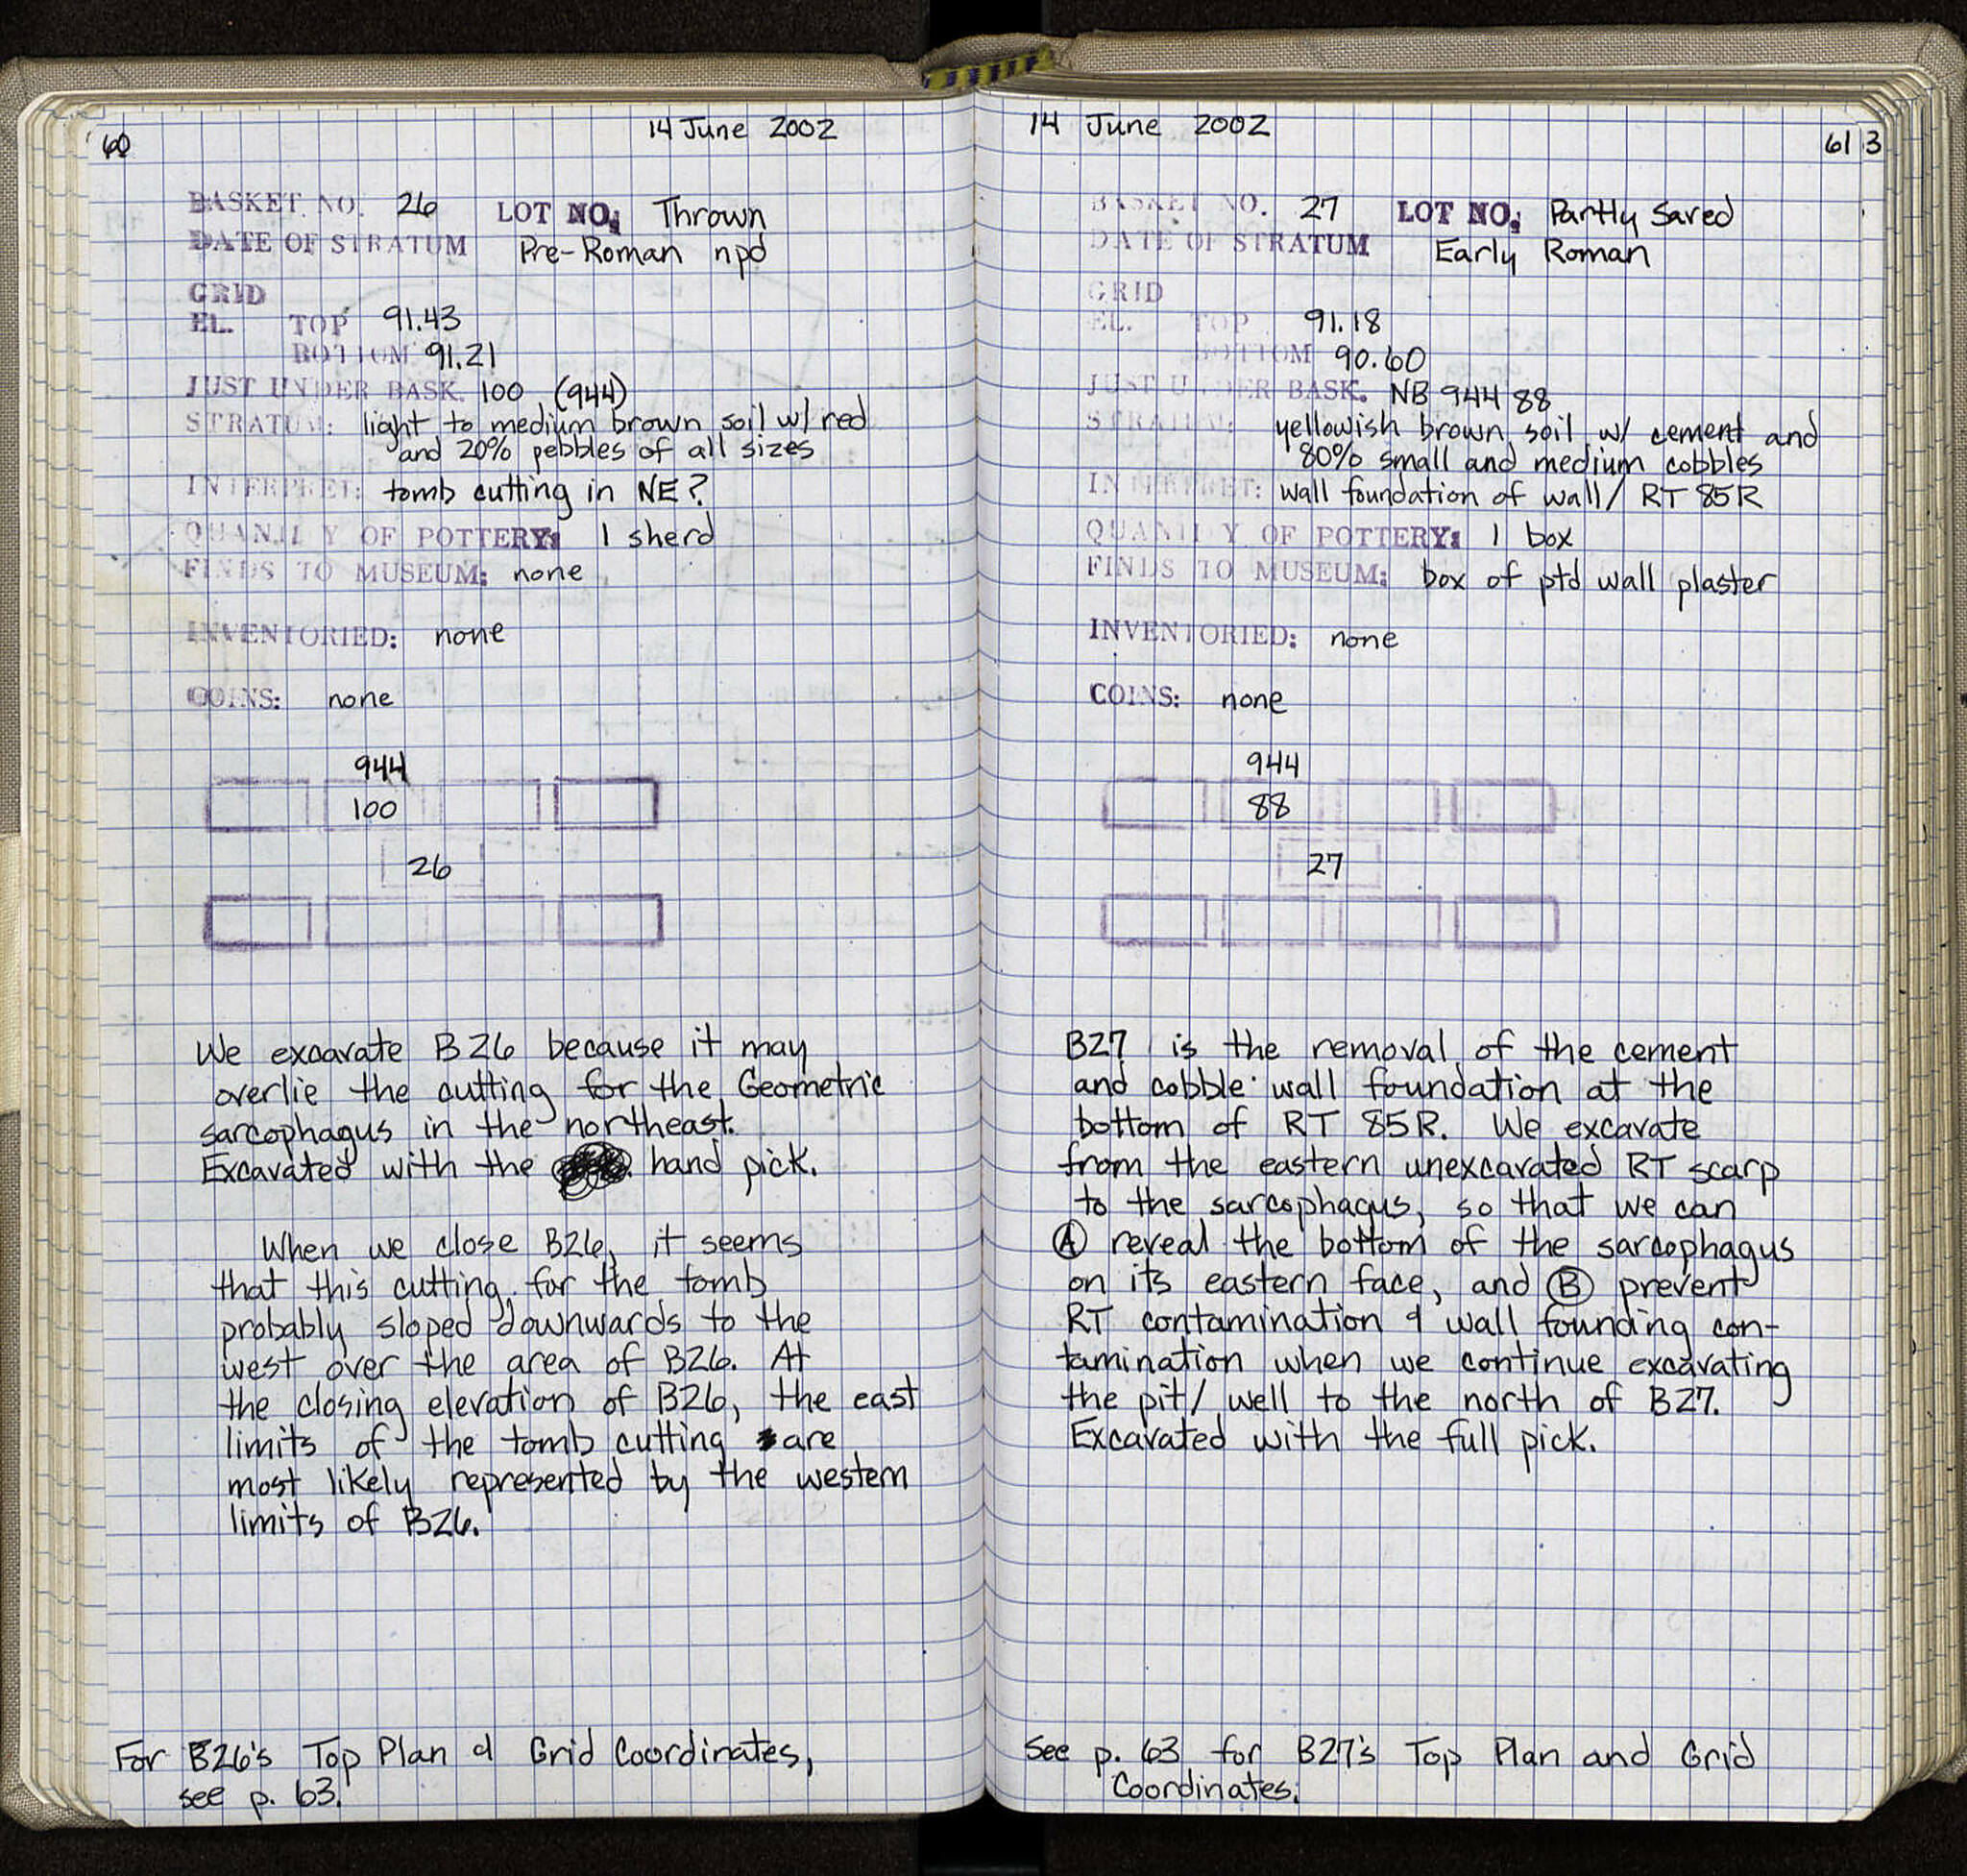 60
14 June 2002
BASKET NO. 26 LOT NO. Thrown
DATE OF STRATUM Pre-Roman npd
GRID
EL. TOP 91.43
BOTTOM 91.21
JUST UNDER BASK. 100 (944)
STRATUM: light to medium brown soil w/ red
and 20% pebbles of all sizes
INTERPRET: tomb cutting in NE?
QUANTITY OF POTTERY: 1 sherd
FINDS TO MUSEUM: none
INVENTORIED: none
COINS: none
944
100
26
We excavate B26 because it may
overlie the cutting for the Geometric
sarcophagus in the northeast.
Excavated with the hand pick.
When we close B26, it seems
that this cutting for the tomb
probably sloped downwards to the
west over the area of B26. At
the closing elevation of B26, the east
limits of the tomb cutting are
most likely represented by the western
limits of B26.
For B26's Top Plan & Grid Coordinates,
see p. 63.
14 June 2002
61 3
BASKET NO. 27 LOT NO. Partly Saved
DATE OF STRATUM Early Roman
GRID
EL. TOP 91.18
BOTTOM 90.60
JUST UNDER BASK. NB 944 88
STRATUM: yellowish brown soil w/ cement and
80% small and medium cobbles
INTERPRET: wall foundation of wall/RT 85R
QUANTITY OF POTTERY: 1 box
FINDS TO MUSEUM: box of ptd wall plaster
INVENTORIED: none
COINS: none
944
88
27
B27 is the removal of the cement
and cobble wall foundation at the
bottom of RT 85R. We excavate
from the eastern unexcavated RT scarp
to the sarcophagus, so that we can
Ⓐ reveal the bottom of the sarcophagus
on its eastern face, and Ⓑ prevent
RT contamination & wall founding con-
tamination when we continue excavating
the pit/well to the north of B27.
Excavated with the full pick.
See p. 63 for B27's Top Plan and Grid
Coordinates.